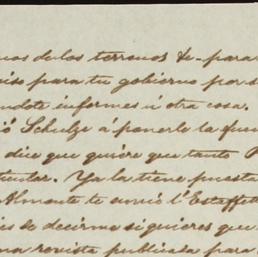 nos de los terrenos te para
viso para tu gobierno por s
ndote informes ú otra cosa.
ió Schulze á ponerle la fuen
dice que quiere que tanto
ticular. Ya la tiene puesta
Almonte te envió l'Estaffet
es de decirme si quieres que
na revista publicada para